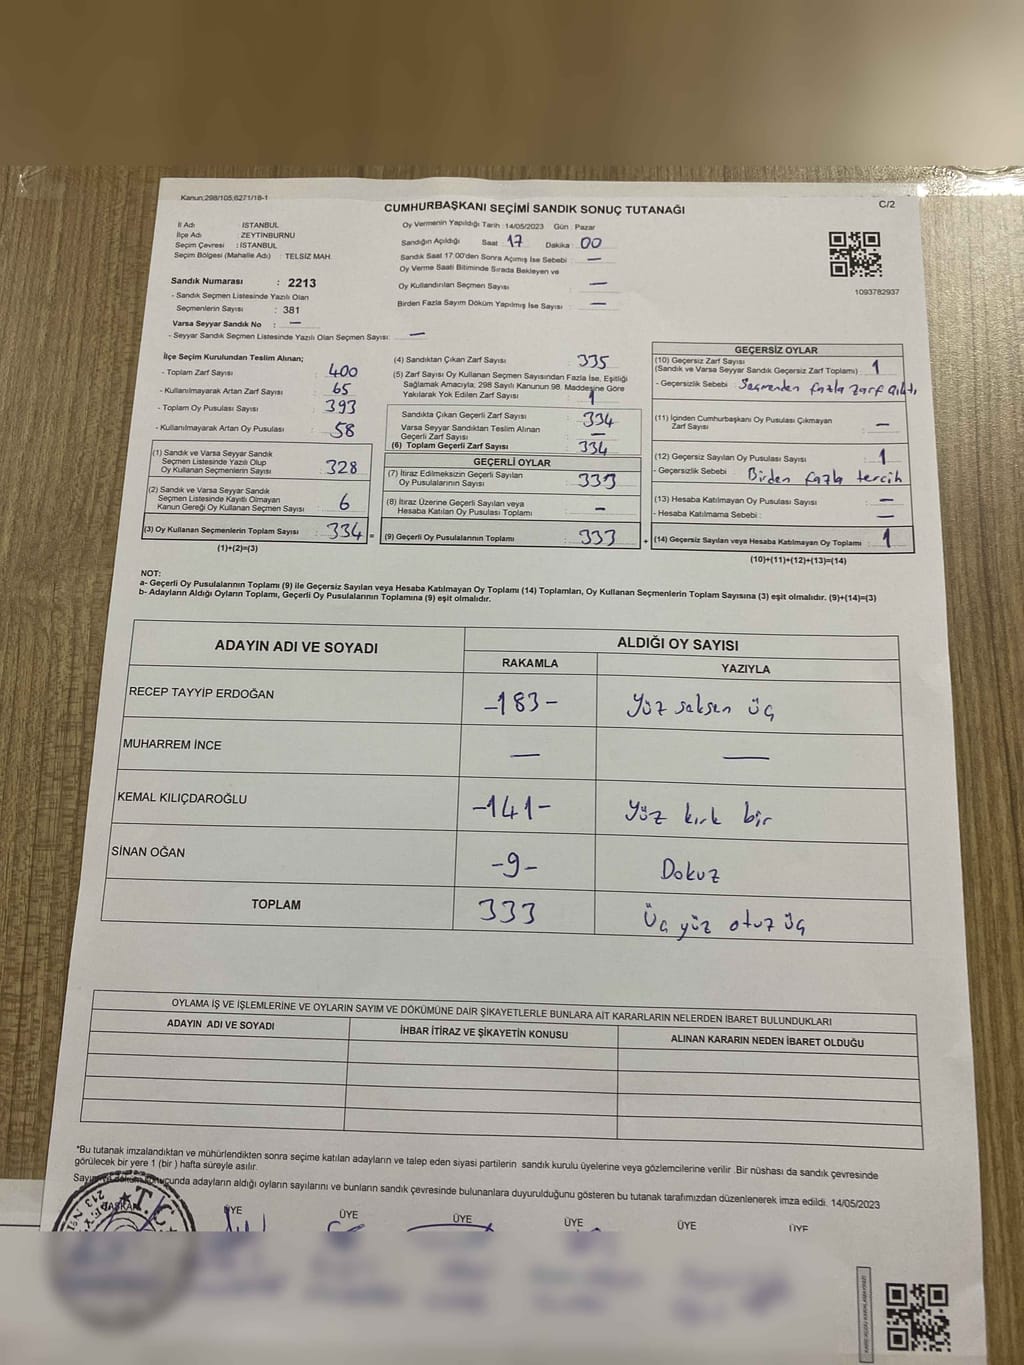 Kanun:298/105;6271/18-1
CUMHURBAŞKANI SEÇİMİ SANDIK SONUÇ TUTANAĞI
C/2
İl Adı : İSTANBUL
İlçe Adı : ZEYTİNBURNU
Seçim Çevresi : İSTANBUL
Seçim Bölgesi (Mahalle Adı) : TELSİZ MAH.
Sandık Numarası : 2213
- Sandık Seçmen Listesinde Yazılı Olan
Seçmenlerin Sayısı : 381
Varsa Seyyar Sandık No : —
- Seyyar Sandık Seçmen Listesinde Yazılı Olan Seçmen Sayısı: —
Oy Vermenin Yapıldığı Tarih : 14/05/2023 Gün : Pazar
Sandığın Açıldığı Saat 17 Dakika : 00
Sandık Saat 17.00'den Sonra Açımış İse Sebebi : —
Oy Verme Saati Bitiminde Sırada Bekleyen ve
Oy Kullandırılan Seçmen Sayısı : —
Birden Fazla Sayım Döküm Yapılmış İse Sayısı : —
1093782937
İlçe Seçim Kurulundan Teslim Alınan;
- Toplam Zarf Sayısı : 400
- Kullanılmayarak Artan Zarf Sayısı : 65
- Toplam Oy Pusulası Sayısı : 393
- Kullanılmayarak Artan Oy Pusulası : 58
(1) Sandık ve Varsa Seyyar Sandık
Seçmen Listesinde Yazılı Olup
Oy Kullanan Seçmenlerin Sayısı : 328
(2) Sandık ve Varsa Seyyar Sandık
Seçmen Listesinde Kayıtlı Olmayan
Kanun Gereği Oy Kullanan Seçmen Sayısı : 6
(3) Oy Kullanan Seçmenlerin Toplam Sayısı : 334 =
(1)+(2)=(3)
(4) Sandıktan Çıkan Zarf Sayısı : 335
(5) Zarf Sayısı Oy Kullanan Seçmen Sayısından Fazla İse, Eşitliği
Sağlamak Amacıyla; 298 Sayılı Kanunun 98. Maddesine Göre
Yakılarak Yok Edilen Zarf Sayısı : 1
Sandıkta Çıkan Geçerli Zarf Sayısı : 334
Varsa Seyyar Sandıktan Teslim Alınan
Geçerli Zarf Sayısı : —
(6) Toplam Geçerli Zarf Sayısı : 334
GEÇERLİ OYLAR
(7) İtiraz Edilmeksizin Geçerli Sayılan
Oy Pusulalarının Sayısı : 333
(8) İtiraz Üzerine Geçerli Sayılan veya
Hesaba Katılan Oy Pusulası Toplamı : —
(9) Geçerli Oy Pusulalarının Toplamı : 333 +
GEÇERSİZ OYLAR
(10) Geçersiz Zarf Sayısı
(Sandık ve Varsa Seyyar Sandık Geçersiz Zarf Toplamı) : 1
- Geçersizlik Sebebi : Seçmenden fazla zarf çıktı,
(11) İçinden Cumhurbaşkanı Oy Pusulası Çıkmayan
Zarf Sayısı : —
(12) Geçersiz Sayılan Oy Pusulası Sayısı : 1
- Geçersizlik Sebebi : Birden fazla tercih
(13) Hesaba Katılmayan Oy Pusulası Sayısı : —
- Hesaba Katılmama Sebebi : —
(14) Geçersiz Sayılan veya Hesaba Katılmayan Oy Toplamı : 1
(10)+(11)+(12)+(13)=(14)
NOT:
a- Geçerli Oy Pusulalarının Toplamı (9) ile Geçersiz Sayılan veya Hesaba Katılmayan Oy Toplamı (14) Toplamları, Oy Kullanan Seçmenlerin Toplam Sayısına (3) eşit olmalıdır. (9)+(14)=(3)
b- Adayların Aldığı Oyların Toplamı, Geçerli Oy Pusulalarının Toplamına (9) eşit olmalıdır.
ADAYIN ADI VE SOYADI
ALDIĞI OY SAYISI
RAKAMLA YAZIYLA
RECEP TAYYİP ERDOĞAN -183- Yüz seksen üç
MUHARREM İNCE — —
KEMAL KILIÇDAROĞLU -141- Yüz kırk bir
SİNAN OĞAN -9- Dokuz
TOPLAM 333 Üç yüz otuz üç
OYLAMA İŞ VE İŞLEMLERİNE VE OYLARIN SAYIM VE DÖKÜMÜNE DAİR ŞİKAYETLERLE BUNLARA AİT KARARLARIN NELERDEN İBARET BULUNDUKLARI
ADAYIN ADI VE SOYADI İHBAR İTİRAZ VE ŞİKAYETİN KONUSU ALINAN KARARIN NEDEN İBARET OLDUĞU
*Bu tutanak imzalandıktan ve mühürlendikten sonra seçime katılan adayların ve talep eden siyasi partilerin sandık kurulu üyelerine veya gözlemcilerine verilir .Bir nüshası da sandık çevresinde
görülecek bir yere 1 (bir ) hafta süreyle asılır.
Sayım döküm sonucunda adayların aldığı oyların sayılarını ve bunların sandık çevresinde bulunanlara duyurulduğunu gösteren bu tutanak tarafımızdan düzenlenerek imza edildi. 14/05/2023
BAŞKAN ÜYE ÜYE ÜYE ÜYE ÜYE ÜYE
T.C.
2213